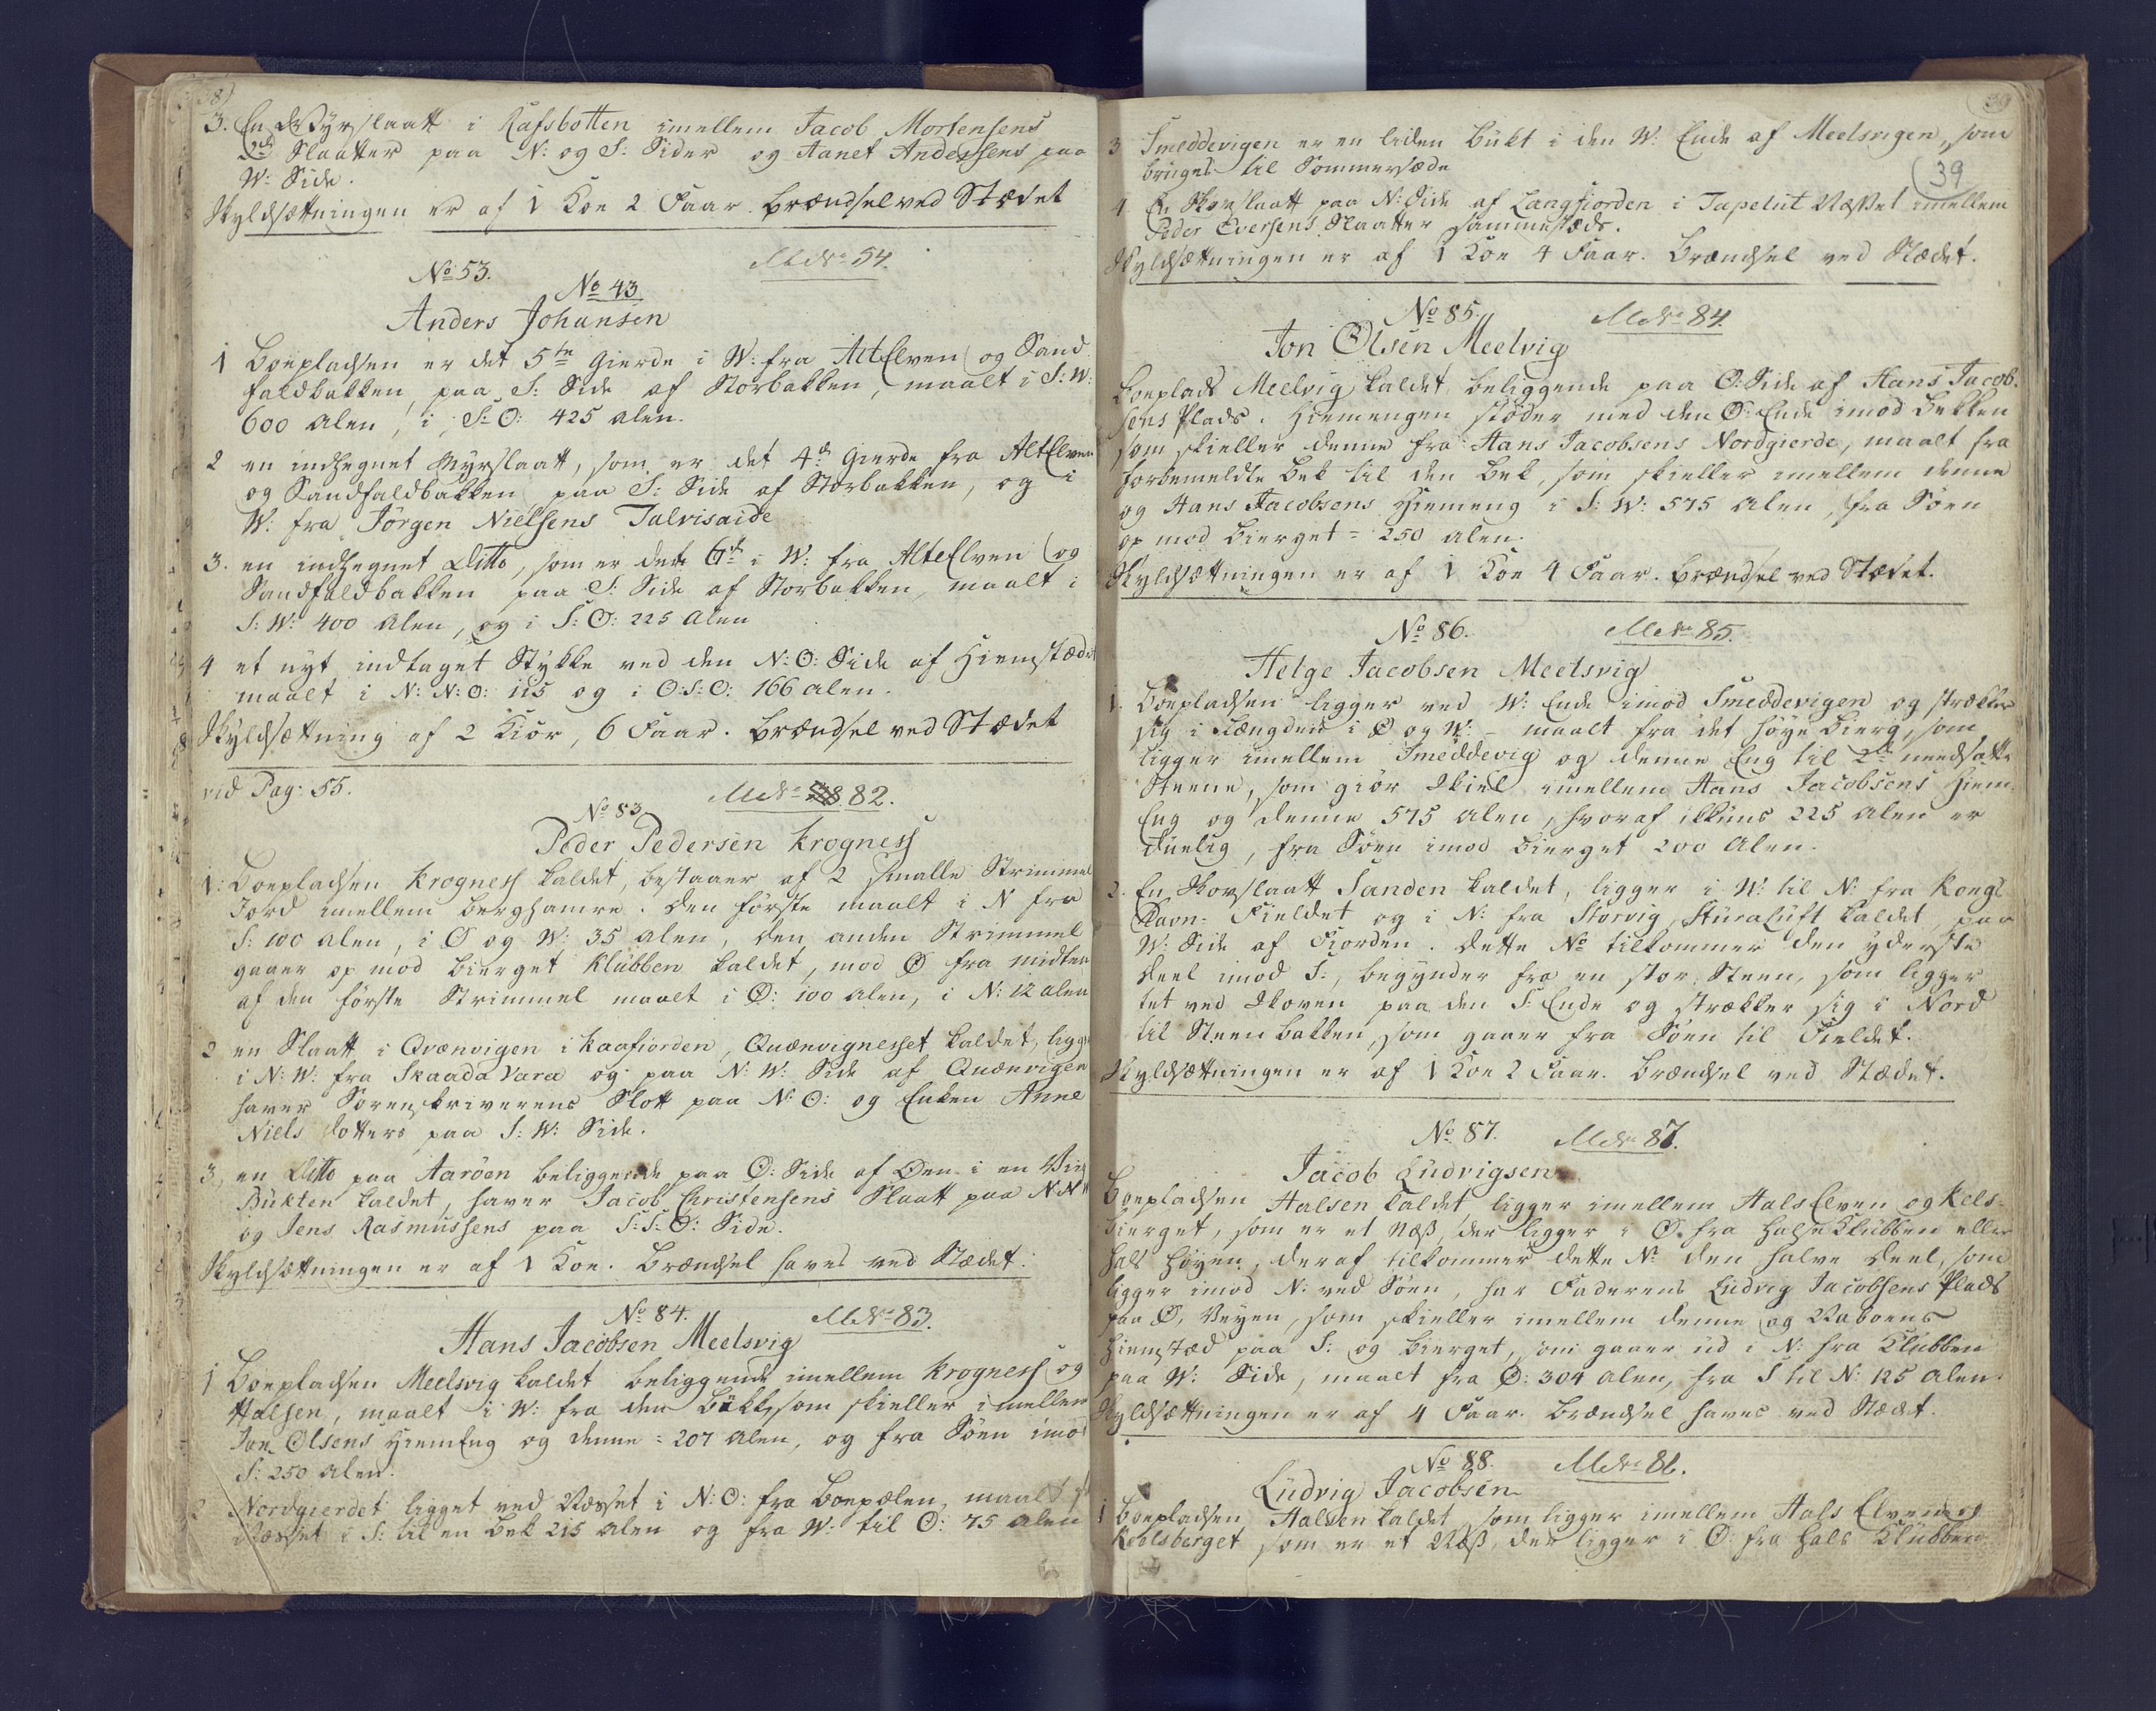 38)
3. En Myrslaatt i Rafsbotten imellem Jacob Mortensens
2de Slaatter paa N: og S: Sider og Aanet Anderssens paa
W: Side.
Skyldsættningen er af 1 Koe 2 Faar. Brændsel ved Stædet
No 53. MNo 54.
No 43
Anders Johansen
1 Boepladsen er det 5te Gierde i W: fra AltElven og Sand
faldbakken, paa S: Side af Storbakken, maalt i S: W:
600 Alen, i S: O: 425 Alen.
2 en indhegnet Myrslaatt, som er det 4de Gierde fra AltElven
og Sandfaldbakken paa S: Side af Storbakken, og i
W: fra Jörgen Nielsens Talvisaide
3. en indhegnet Ditto, som er det 6te i W: fra AlteElven og
Sandfaldbakken paa S: Side af Storbakken, maalt i
S: W: 400 Alen, og i S: O: 225 Alen
4 et nyt indtaget Stykke ved den N: O: Side af Hiemstædet
maalt i N: N: O: 115 og i O: S: O: 166 Alen.
Skyldsættning af 2 Kiör, 6 Faar. Brændsel ved Stædet
vid Pag: 55. MNo 82.
No 83
Peder Pedersen Krogness
1: Boepladsen Krogness kaldet, bestaaer af 2 smalle Strimmel
Jord imellem Berghamre. Den förste maalt i N fra
S: 100 Alen, i O og W: 35 Alen, den anden Strimmel
gaaer op mod Bierget Klubben kaldet, mod O fra midten
af den förste Strimmel maalt i O: 100 Alen, i N: 12 Alen
2 en Slaatt i Qvænvigen i Kaafiorden, Quænvignesset kaldet, ligge
i N: W: fra Skaada Vara og paa N: W: Side af Quænvigen
haver Sorenskriverens Slott paa N: O: og Enken Anne
Niels dotters paa S: W: Side.
3, en Ditto paa Aaröen beliggende paa O: Side af Öen i en Viig
Bukten kaldet, haver Jacob Christensens Slaatt paa N: N
og Jens Rasmussens paa S: S: O: Side.
Skyldsættningen er af 1 Koe. Brændsel haves ved Stædet.
No 84. MNo 83.
Hans Jacobsen Meelsvig
1 Boepladsen Meelsvig kaldet beliggende imellem Krogness og
Halsen, maalt i W: fra den Bekk, som skieller imellem
Jon Olsens HiemEng og denne = 207 Alen, og fra Söen imod
S: 250 Alen.
2 Nordgierdet ligget ved Næsset i N: O: fra Boepælen, maalt fra
Næsset i S: til en Bek 215 Alen og fra W: til O: 75 Alen
39
3 Smeddevigen er en liden Bukt i den W: Ende af Meelsvigen, som
bruges til Sommersæde
39
4 En Skovslaatt paa N: Side af Langfiorden i Tapelut Næsset imellem
Peder Eversens Slaatter sammestæds.
Skyldsættningen er af 1 Koe 4 Faar. Brændsel ved Stædet.
No 85. MNo 84
Jon Olsen Meelvig
Boeplads Meelvig kaldet beliggende paa O: Side af Hans Jacob-
sens Plads. Hiemengen stöder med den O: Ende imod Bekken
som skieller denne fra Hans Jacobsens Nordgierde, maalt fra
forbemeldte Bek til den Bek, som skieller imellem denne
og Hans Jacobsens Hiemeng i S: W: 575 Alen, fra Söen
op mod Bierget = 250 Alen.
Skyldsættningen er af 1 Koe 4 Faar. Brændsel ved Stædet.
No 86. MNo 85.
Helge Jacobsen Meelsvig
1. Boepladsen ligger ved W: Ende imod Smeddevigen og strækker
sig i Længden i O og W: - maalt fra det höye Bierg, som
ligger imellem Smeddevig og denne Eng til 2de needsatte
Steene, som giör Skiel imellem Hans Jacobsens Hiem-
Eng og denne 575 Alen, hvoraf ikkuns 225 Alen er
duelig, fra Söen imod Bierget 200 Alen.
2. En Skovslaatt Sanden kaldet, ligger i W: til N: fra Kongs
Havn-Fieldet og i N: fra Storvig, Sturaluft kaldet paa
W: Side af Fiorden. Dette No tilkommer den yderste
Deel imod S:, begynder fra en stor Steen, som ligger
tet ved Skoven paa den S: Ende og strækker sig i Nord
til Steen Bakken, som gaaer fra Söen til Fieldet.
Skyldsættningen er af 1 Koe 2 Faar. Brændsel ved Stædet.
No 87. MNo 87.
Jacob Ludvigsen
Boepladsen Halsen kaldet, ligger imellem Hals Elven og Kels-
bierget, som er et Næss, der ligger i O. fra Halse Klubben eller
Hals Höyen, deraf tilkommer dette No den halve Deel, som
ligger imod N: ved Söen, har Faderens Ludvig Jacobsens Plads
paa O, Veyen, som skieller imellem denne og Naboens
Hiemstæd paa S: og Bierget, som gaaer ud i N: fra Klubben
paa W: Side, maalt fra O: 304 Alen, fra S til N: 125 Alen.
Skyldsættningen er af 4 Faar. Brændsel haves ved Stædet.
No 88. MNo 86.
Ludvig Jacobsen
1 Boepladsen Halsen kaldet, som ligger imellem Hals Elven og
Keelsberget som er et Næss, der ligger i O: fra Hals Klubben